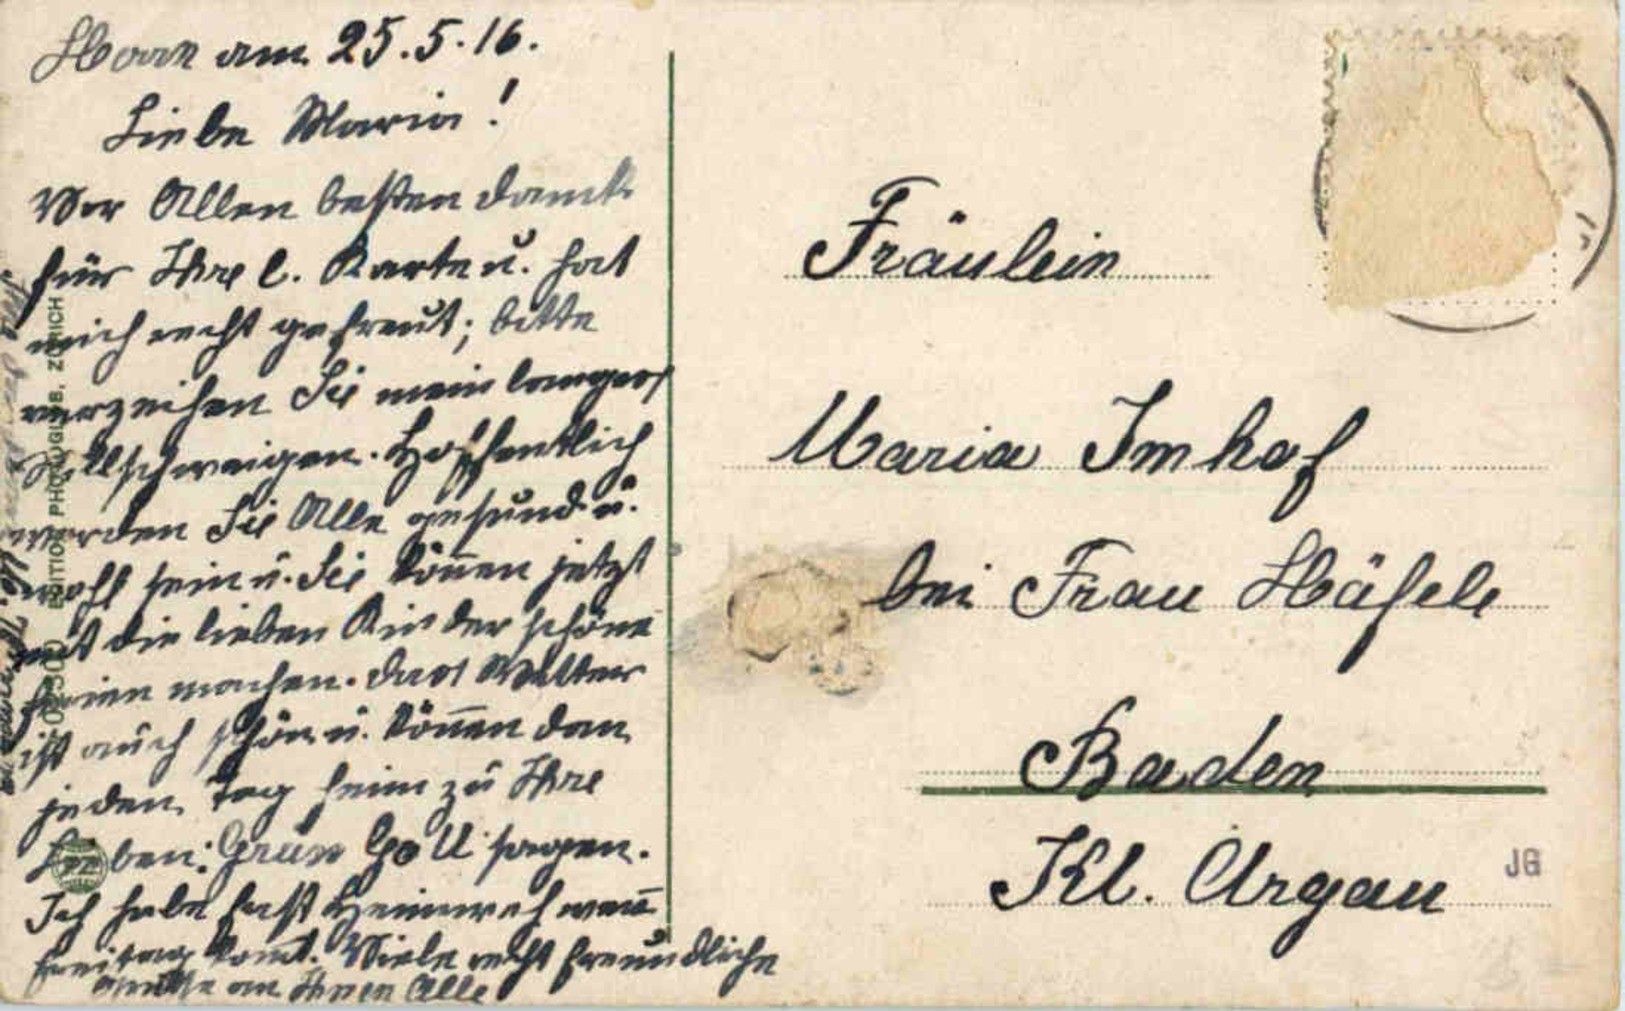 am 25.5.16.
Liebe Maria!
Vor Allen besten Dank
für Ihre l. Karte u. hat
mich recht gefreut; bitte
verzeihen Sie mein langes
Stillschweigen. Hoffentlich
werden Sie Alle gesund u.
wohl sein u. Sie können jetzt
mit die lieben Kinder schöne
Ferien machen. Das Wetter
ist auch schön u. können dan
jeden Tag heim zu Ihre
Lieben: Grüss Gott sagen.
Ich habe fast Heimweh wenn
Freitag komt. Viele recht freundliche
an Ihnen Alle
EDITION PHOTOGLOB. ZÜRICH
PZ
Fräulein
Maria Imhof
bei Frau Häfele
Baden
Kt. Argau
JG